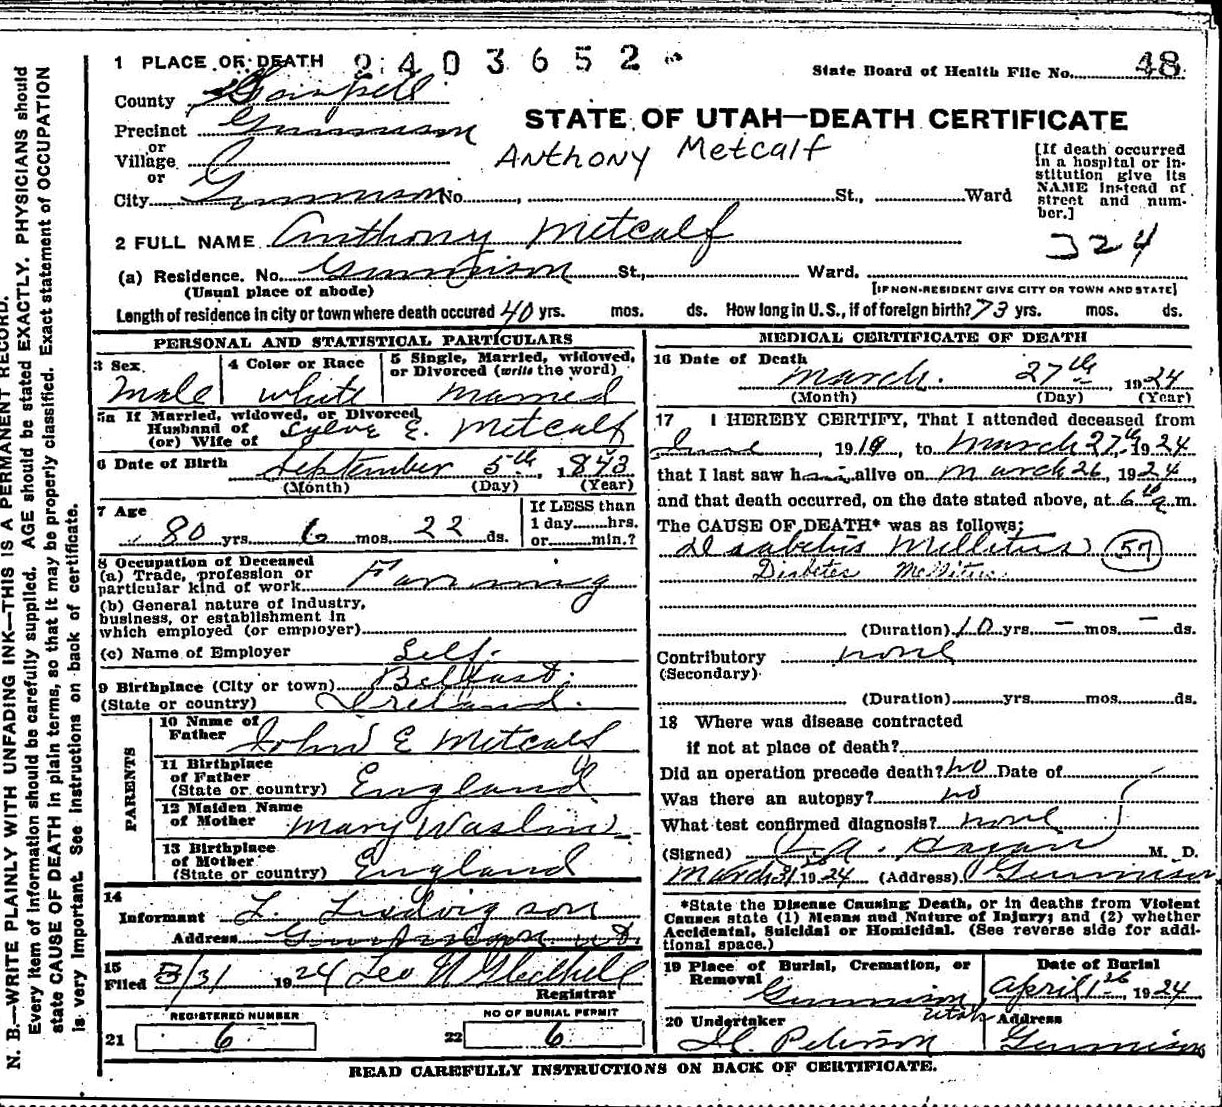 N. B.—WRITE PLAINLY WITH UNFADING INK—THIS IS A PERMANENT RECORD.
Every item of information should be carefully supplied. AGE should be stated EXACTLY. PHYSICIANS should
state CAUSE OF DEATH in plain terms, so that it may be properly classified. Exact statement of OCCUPATION
is very important. See instructions on back of certificate.
1 PLACE OF DEATH 2403652
State Board of Health File No. 48
County Sanpete
STATE OF UTAH—DEATH CERTIFICATE
Precinct Gunnison
or
Village
Anthony Metcalf
or
City Gunnison No. St., Ward
[If death occurred
in a hospital or in-
stitution give its
NAME instead of
street and num-
ber.]
2 FULL NAME Anthony Metcalf
324
(a) Residence. No. Gunnison St., Ward.
(Usual place of abode) [IF NON-RESIDENT GIVE CITY OR TOWN AND STATE]
Length of residence in city or town where death occured 40 yrs. mos. ds. How long in U.S., if of foreign birth? 73 yrs. mos. ds.
PERSONAL AND STATISTICAL PARTICULARS
3 Sex 4 Color or Race 5 Single, Married, widowed,
or Divorced (write the word)
Male white married
5a If Married, widowed, or Divorced
Husband of
(or) Wife of E. Metcalf
6 Date of Birth September 5th, 1843
(Month) (Day) (Year)
7 Age
80 yrs. 6 mos. 22 ds.
If LESS than
1 day hrs.
or min.?
8 Occupation of Deceased
(a) Trade, profession or
particular kind of work Farming
(b) General nature of industry,
business, or establishment in
which employed (or employer)
(c) Name of Employer Self.
9 Birthplace (City or town) Belfast.
(State or country) Ireland.
PARENTS
10 Name of
Father John E Metcalf
11 Birthplace
of Father
(State or country) England
12 Maiden Name
of Mother Mary Waslin
13 Birthplace
of Mother
(State or country) England
14
Informant L. Ludvigson
Address Gunnison
15
Filed 3/31 1924 Leo
Registrar
REGISTERED NUMBER NO OF BURIAL PERMIT
21 6 22 6
MEDICAL CERTIFICATE OF DEATH
16 Date of Death
March. 27th 1924
(Month) (Day) (Year)
17 I HEREBY CERTIFY, That I attended deceased from
June, 1919, to March 27th 1924
that I last saw him alive on March 26, 1924,
and that death occurred, on the date stated above, at 6 10 a m.
The CAUSE OF DEATH* was as follows:
Diabetus Mellitus 57
Diabetes Mellitus
(Duration) 10 yrs. — mos. — ds.
Contributory none
(Secondary)
(Duration) yrs. mos. ds.
18 Where was disease contracted
if not at place of death?
Did an operation precede death? no Date of
Was there an autopsy? no
What test confirmed diagnosis? none
(Signed) A. Hagan M. D.
March 31 1924 (Address) Gunnison
*State the Disease Causing Death, or in deaths from Violent
Causes state (1) Means and Nature of Injury; and (2) whether
Accidental, Suicidal or Homicidal. (See reverse side for addi-
tional space.)
19 Place of Burial, Cremation, or
Removal
Gunnison Utah
Date of Burial
April 1st, 1924
20 Undertaker Address
Peterson Gunnison
READ CAREFULLY INSTRUCTIONS ON BACK OF CERTIFICATE.